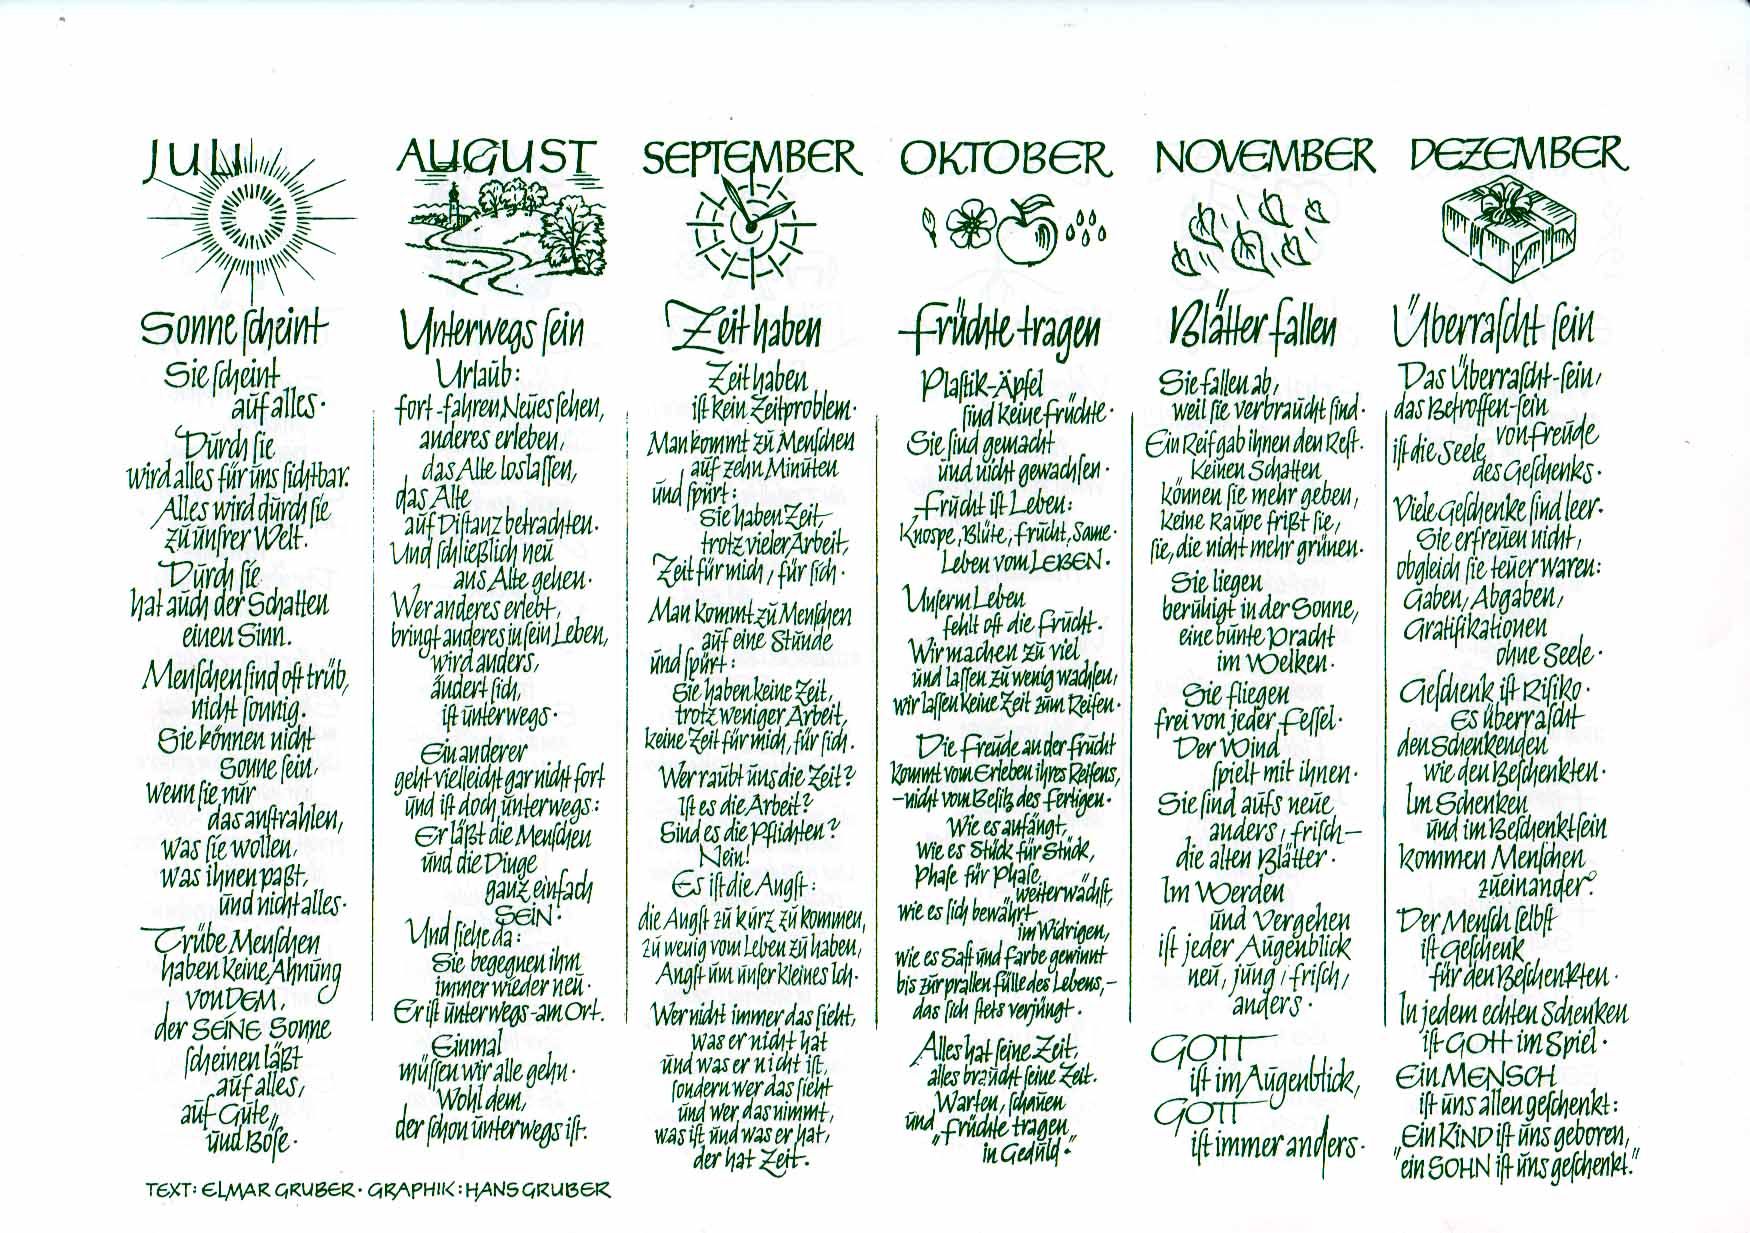 JULI
Sonne scheint
Sie scheint
auf alles.
Durch sie
wird alles für uns sichtbar.
Alles wird durch sie
zu unsrer Welt.
Durch sie
hat auch der Schatten
einen Sinn.
Menschen sind oft trüb,
nicht sonnig.
Sie können nicht
Sonne sein,
wenn sie nur
das anstrahlen,
was sie wollen,
was ihnen paßt,
und nicht alles.
Trübe Menschen
haben keine Ahnung
von DEM,
der SEINE Sonne
scheinen läßt
auf alles,
auf Gute
und Böse.
AUGUST
Unterwegs sein
Urlaub:
fort-fahren, Neues sehen,
anderes erleben,
das Alte loslassen,
das Alte
auf Distanz betrachten.
Und schließlich neu
ans Alte gehen.
Wer anderes erlebt,
bringt anderes in sein Leben,
wird anders,
ändert sich,
ist unterwegs.
Ein anderer
geht vielleicht gar nicht fort
und ist doch unterwegs:
Er läßt die Menschen
und die Dinge
ganz einfach
SEIN.
Und siehe da:
Sie begegnen ihm
immer wieder neu.
Er ist unterwegs-am Ort.
Einmal
müssen wir alle gehn.
Wohl dem,
der schon unterwegs ist.
SEPTEMBER
Zeit haben
Zeit haben
ist kein Zeitproblem.
Man kommt zu Menschen
auf zehn Minuten
und spürt:
Sie haben Zeit,
trotz vieler Arbeit,
Zeit für mich, für sich.
Man kommt zu Menschen
auf eine Stunde
und spürt:
Sie haben keine Zeit,
trotz weniger Arbeit,
keine Zeit für mich, für sich.
Wer raubt uns die Zeit?
Ist es die Arbeit?
Sind es die Pflichten?
Nein!
Es ist die Angst:
die Angst zu kurz zu kommen,
zu wenig vom Leben zu haben,
Angst um unser kleines Ich.
Wer nicht immer das sieht,
was er nicht hat
und was er nicht ist,
sondern wer das sieht
und wer das nimmt,
was ist und was er hat,
der hat Zeit.
OKTOBER
Früchte tragen
Plastik-Äpfel
sind keine Früchte.
Sie sind gemacht
und nicht gewachsen.
Frucht ist Leben:
Knospe, Blüte, Frucht, Same.
Leben vom LEBEN.
Unserm Leben
fehlt oft die Frucht.
Wir machen zu viel
und lassen zu wenig wachsen,
wir lassen keine Zeit zum Reifen.
Die Freude an der Frucht
kommt vom Erleben ihres Reifens,
-nicht vom Besitz des Fertigen.
Wie es anfängt,
wie es Stück für Stück,
Phase für Phase
weiterwächst,
wie es sich bewährt
im Widrigen,
wie es Saft und Farbe gewinnt
bis zur prallen Fülle des Lebens,-
das sich stets verjüngt.
Alles hat seine Zeit,
alles braucht seine Zeit.
Warten, schauen
und „Früchte tragen"
in Geduld.
NOVEMBER
Blätter fallen
Sie fallen ab,
weil sie verbraucht sind.
Ein Reif gab ihnen den Rest.
Keinen Schatten
können sie mehr geben,
keine Raupe frißt sie,
sie, die nicht mehr grünen.
Sie liegen
beruhigt in der Sonne,
eine bunte Pracht
im Welken.
Sie fliegen
frei von jeder Fessel.
Der Wind
spielt mit ihnen.
Sie sind aufs neue
anders, frisch—
die alten Blätter.
Im Werden
und Vergehen
ist jeder Augenblick
neu, jung, frisch,
anders.
GOTT
ist im Augenblick,
GOTT
ist immer anders.
DEZEMBER
Überrascht sein
Das Überrascht-sein,
das Betroffen-sein
von Freude
ist die Seele
des Geschenks.
Viele Geschenke sind leer.
Sie erfreuen nicht,
obgleich sie teuer waren:
Gaben, Abgaben,
Gratifikationen
ohne Seele.
Geschenk ist Risiko.
Es überrascht
den Schenkenden
wie den Beschenkten.
Im Schenken
und im Beschenktsein
kommen Menschen
zueinander.
Der Mensch selbst
ist Geschenk
für den Beschenkten.
In jedem echten Schenken
ist GOTT im Spiel.
Ein MENSCH
ist uns allen geschenkt:
„Ein KIND ist uns geboren,
„ein SOHN ist uns geschenkt."
TEXT: ELMAR GRUBER · GRAPHIK: HANS GRUBER